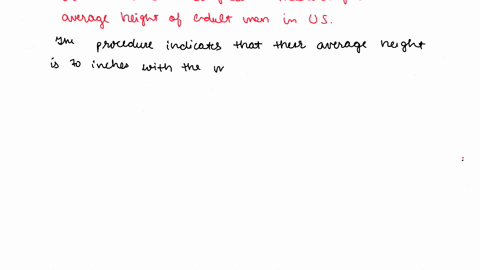 average height of adult men in US.
The procedure indicates that their average height
is 70 inches with the w